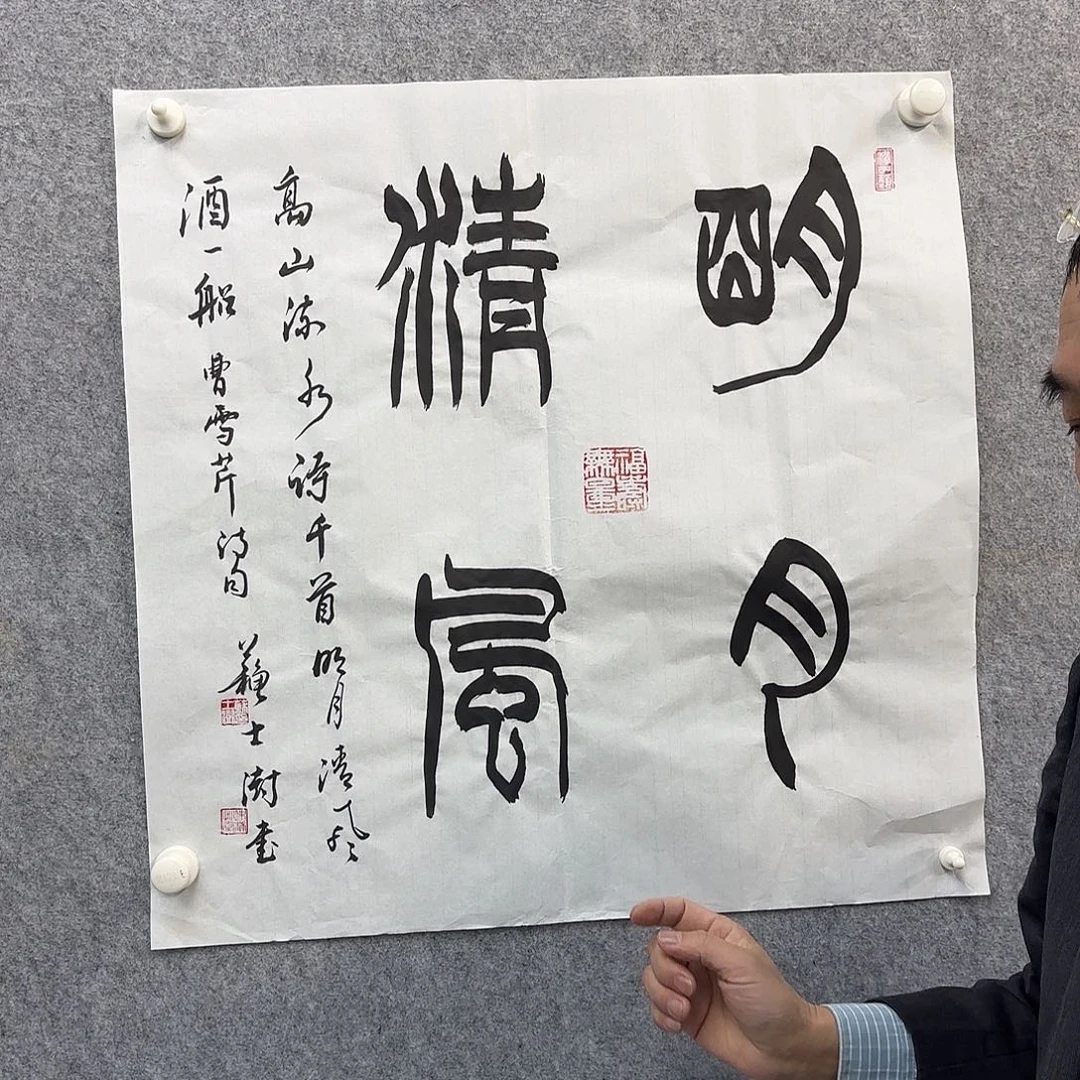 明月
清風
高山流水詩千首明月清風
酒一船 曹雪芹詩句 蘇士澍書
福壽無量